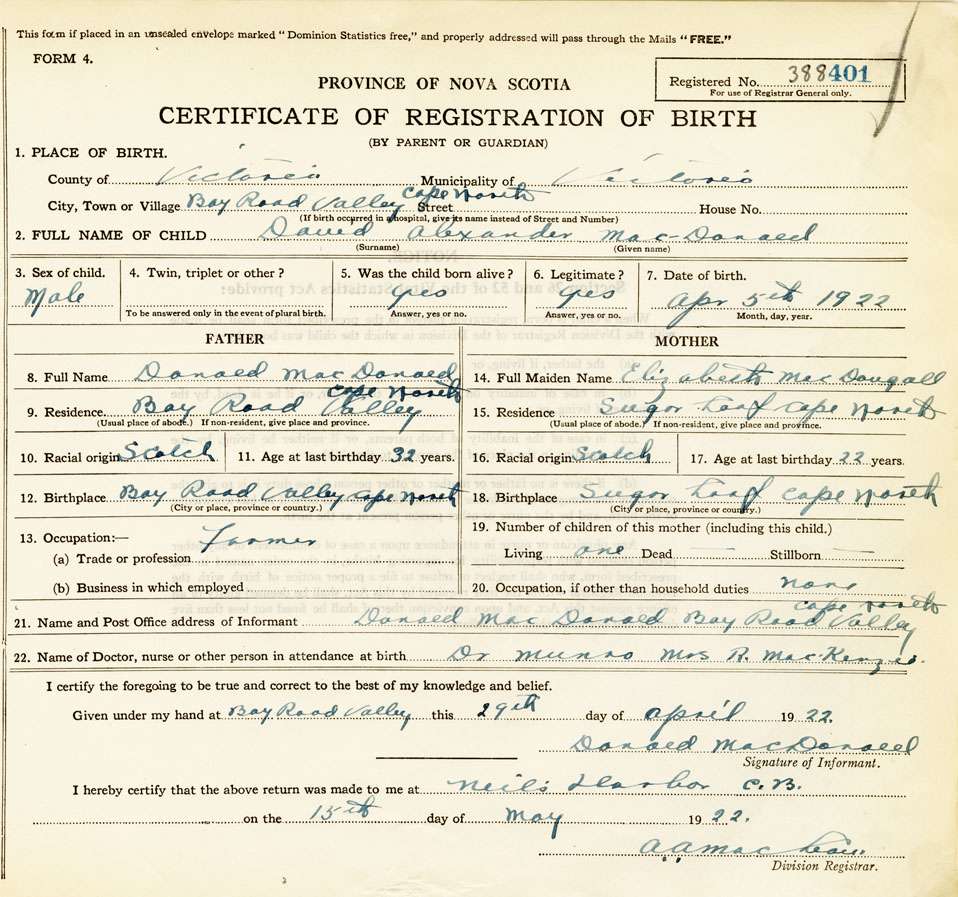 This form if placed in an unsealed envelope marked "Dominion Statistics free," and properly addressed will pass through the Mails "FREE."
FORM 4.
Registered No. 388401
For use of Registrar General only.
PROVINCE OF NOVA SCOTIA
CERTIFICATE OF REGISTRATION OF BIRTH
(BY PARENT OR GUARDIAN)
1. PLACE OF BIRTH.
County of Victoria Municipality of Victoria
City, Town or Village Bay Road Valley Cape North Street House No.
(If birth occurred in a hospital, give its name instead of Street and Number)
2. FULL NAME OF CHILD David Alexander Mac-Donald
(Surname) (Given name)
3. Sex of child. 4. Twin, triplet or other? 5. Was the child born alive? 6. Legitimate? 7. Date of birth.
Male yes yes Apr 5th 1922
To be answered only in the event of plural birth. Answer, yes or no. Answer, yes or no. Month, day, year.
FATHER MOTHER
8. Full Name Donald MacDonald 14. Full Maiden Name Elizabeth MacDougall
9. Residence. Bay Road Valley Cape North 15. Residence Sugar Loaf Cape North
(Usual place of abode.) If non-resident, give place and province. (Usual place of abode.) If non-resident, give place and province.
10. Racial origin Scotch 11. Age at last birthday 32 years. 16. Racial origin Scotch 17. Age at last birthday 22 years.
12. Birthplace Bay Road Valley Cape North 18. Birthplace Sugar Loaf Cape North
(City or place, province or country.) (City or place, province or country.)
13. Occupation:— Farmer 19. Number of children of this mother (including this child.)
(a) Trade or profession Living one Dead — Stillborn —
(b) Business in which employed 20. Occupation, if other than household duties none
21. Name and Post Office address of Informant Donald MacDonald Bay Road Valley Cape North
22. Name of Doctor, nurse or other person in attendance at birth Dr Munro Mrs R. MacKenzie.
I certify the foregoing to be true and correct to the best of my knowledge and belief.
Given under my hand at Bay Road Valley this 29th day of April 1922.
Donald MacDonald
Signature of Informant.
I hereby certify that the above return was made to me at Neil's Harbor C.B.
on the 15th day of May 1922.
A.A. MacLean.
Division Registrar.